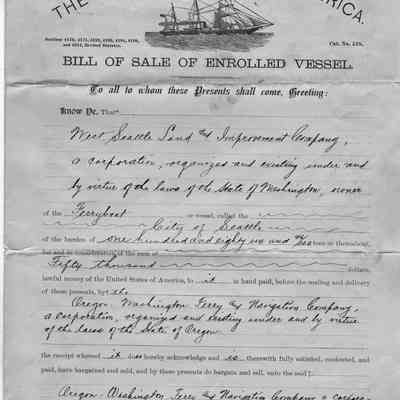 THE
RICA.
Sections 4170, 4171, 4192, 4193, 4194, 4196,
and 4312, Revised Statutes.
Cat. No.
BILL OF SALE OF ENROLLED VESSEL.
To all to whom these Presents shall come, Greeting:
Know Ye, That
West Seattle Land & Improvement Company,
a corporation, organized and existing under and
by virtue of the laws of the State of Washington, owner
of the Ferryboat or vessel, called the
City of Seattle
of the burden of one hundred and eighty six and tons or thereabout,
for and in consideration of the sum of
Fifty thousand dollars,
lawful money of the United States of America, to it in hand paid, before the sealing and delivery
of these presents, by the
Oregon Washington Ferry & Navigation Company,
a corporation, organized and existing under and by virtue
of the laws of the State of Oregon
the receipt whereof it hereby acknowledge and is therewith fully satisfied, contented, and
paid, have bargained and sold, and by these presents do bargain and sell, unto the said
Oregon Washington Ferry & Navigation Company a corpora-